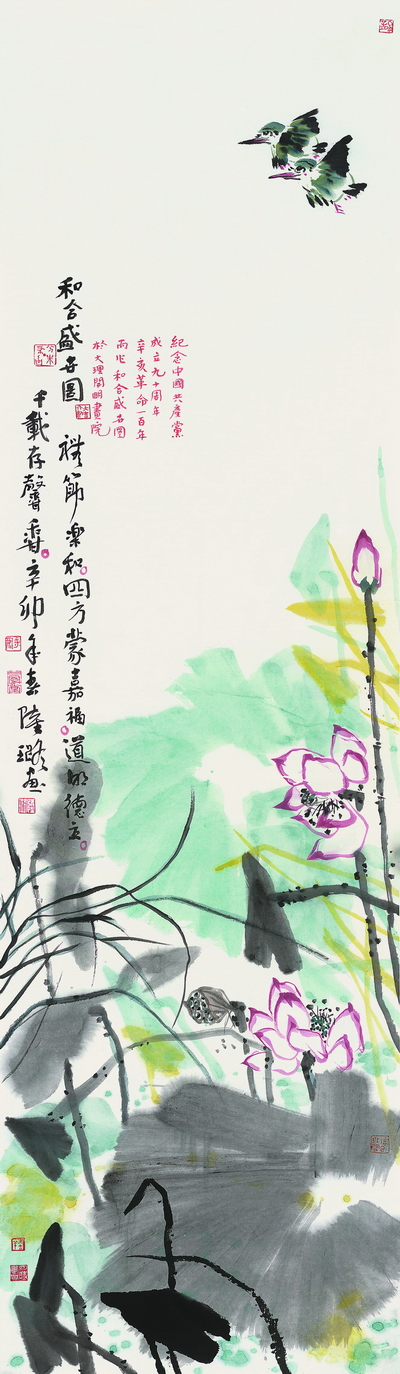 紀念中國共產黨
成立九十周年
辛亥革命一百年
而作和合盛世圖
於大理開明畫院
和合盛世圖
禮節樂和四方蒙嘉福道明德立
千載存馨香辛卯年春陸璐画